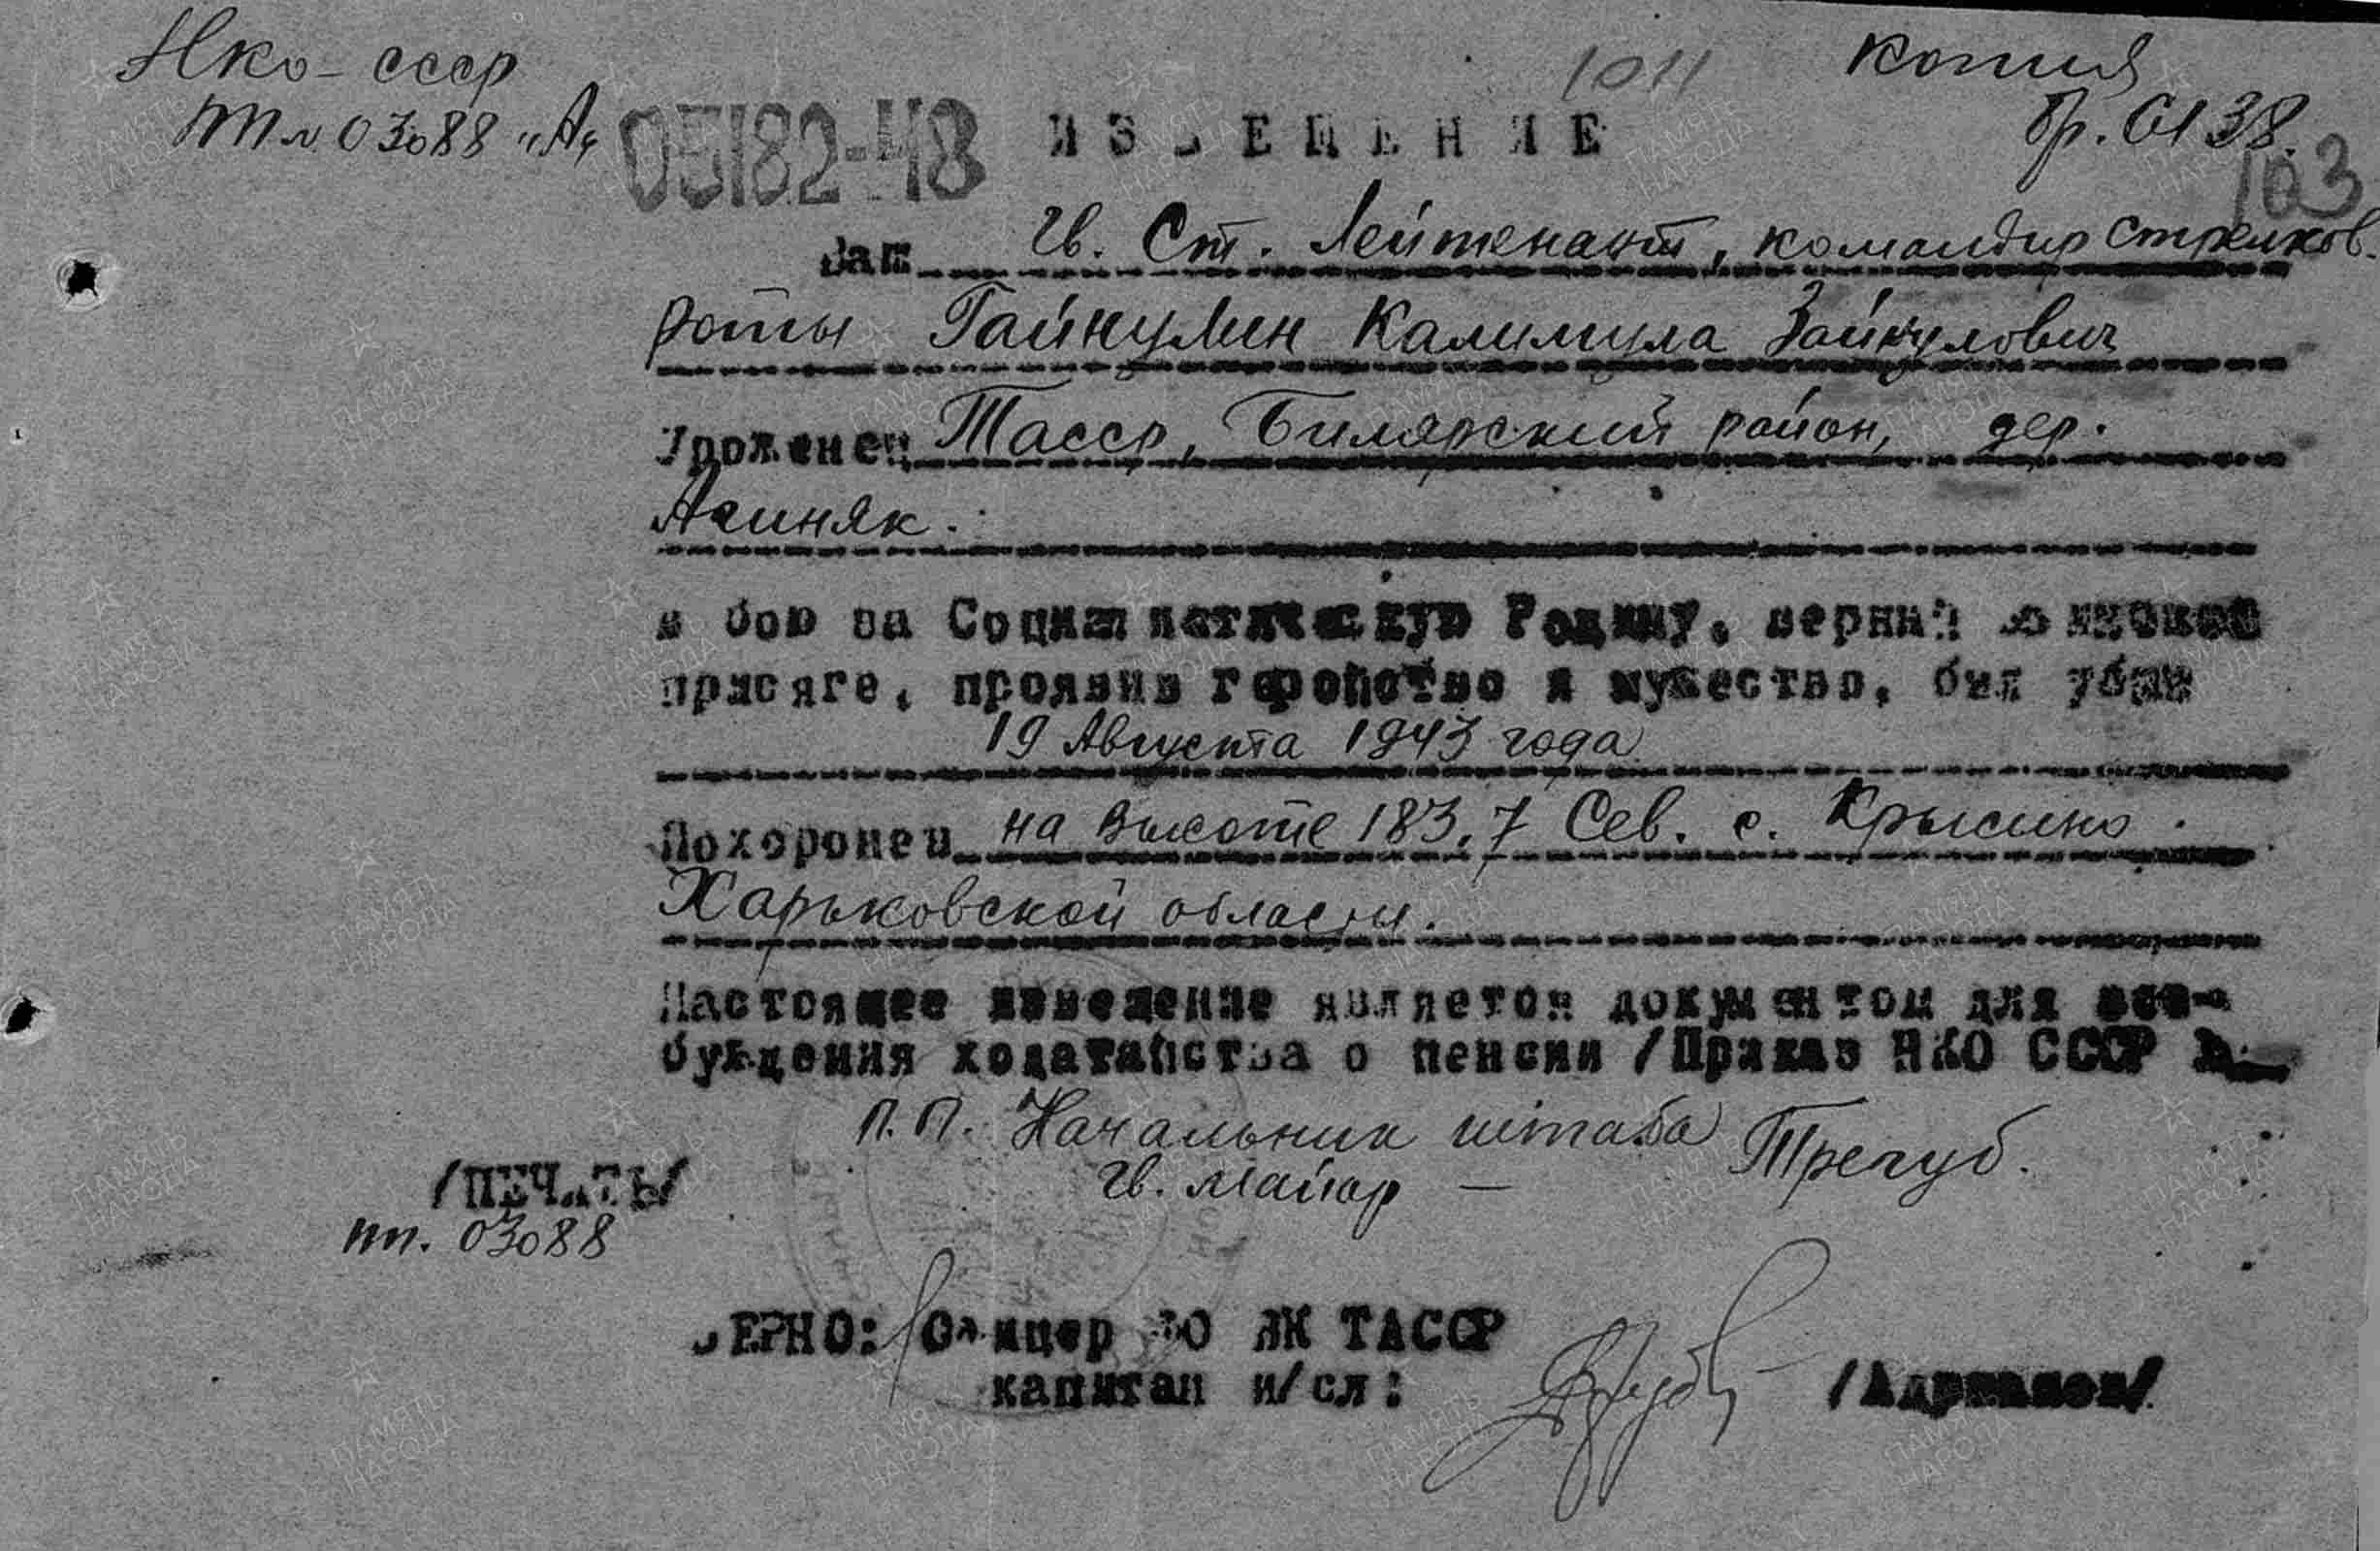 Нко-ссср
пп № 03088 "А"
05182-48
1011
Копия
Вр. 0138.
103
ИЗВЕЩЕНИЕ
Ваш Гв. Ст. Лейтенант, командир стрелков.
роты Гайнулин Калимула Зайнулович
Уроженец Тасср, Билярский район, дер.
Акиняк.
в бою за Социалистическую Родину, верный воинской
присяге, проявив геройство и мужество, был убит
19 Августа 1943 года
Похоронен на высоте 183,7 Сев. с. Крысино.
Харьковской области.
Настоящее извещение является документом для воз-
буждения ходатайства о пенсии /Приказ НКО СССР №
п.п. Начальник штаба
Гв. майор — Трегуб.
/ПЕЧАТЬ/
пп. 03088
ВЕРНО: Офицер ВК ТАССР
капитан и/сл:
/Адрианов/